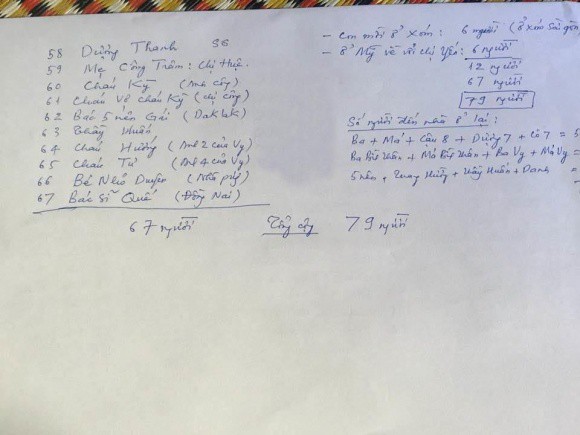 58 Dương Thanh SG
59 Mẹ Công Trâm: Chị Huệ.
60 Cháu Kỳ (Anh Công)
61 Cháu Vợ cháu Kỳ (chị Công)
62 Bác 5 nên Gái (Daklak)
63 Thầy Huấn
64 Cháu Hường (Anh 2 của Vy)
65 Cháu Tư (Anh 4 của Vy)
66 Bé Nhỏ Duyên (Nhà phụ)
67 Bác Sĩ Quế (Đồng Nai)
67 người Tổng cộng 79 người
- Con mời ở xóm: 6 người (ở xóm Sài gòn
- ở Mỹ về chị Yến: 6 người
12 người
67 người
79 người
Số người đến nhà ở lại:
Ba + Má + Cậu 8 + Dượng 7 + Cô 7 = 5
Ba Vy + Má Vy =
+ Thầy Huấn + Danh =